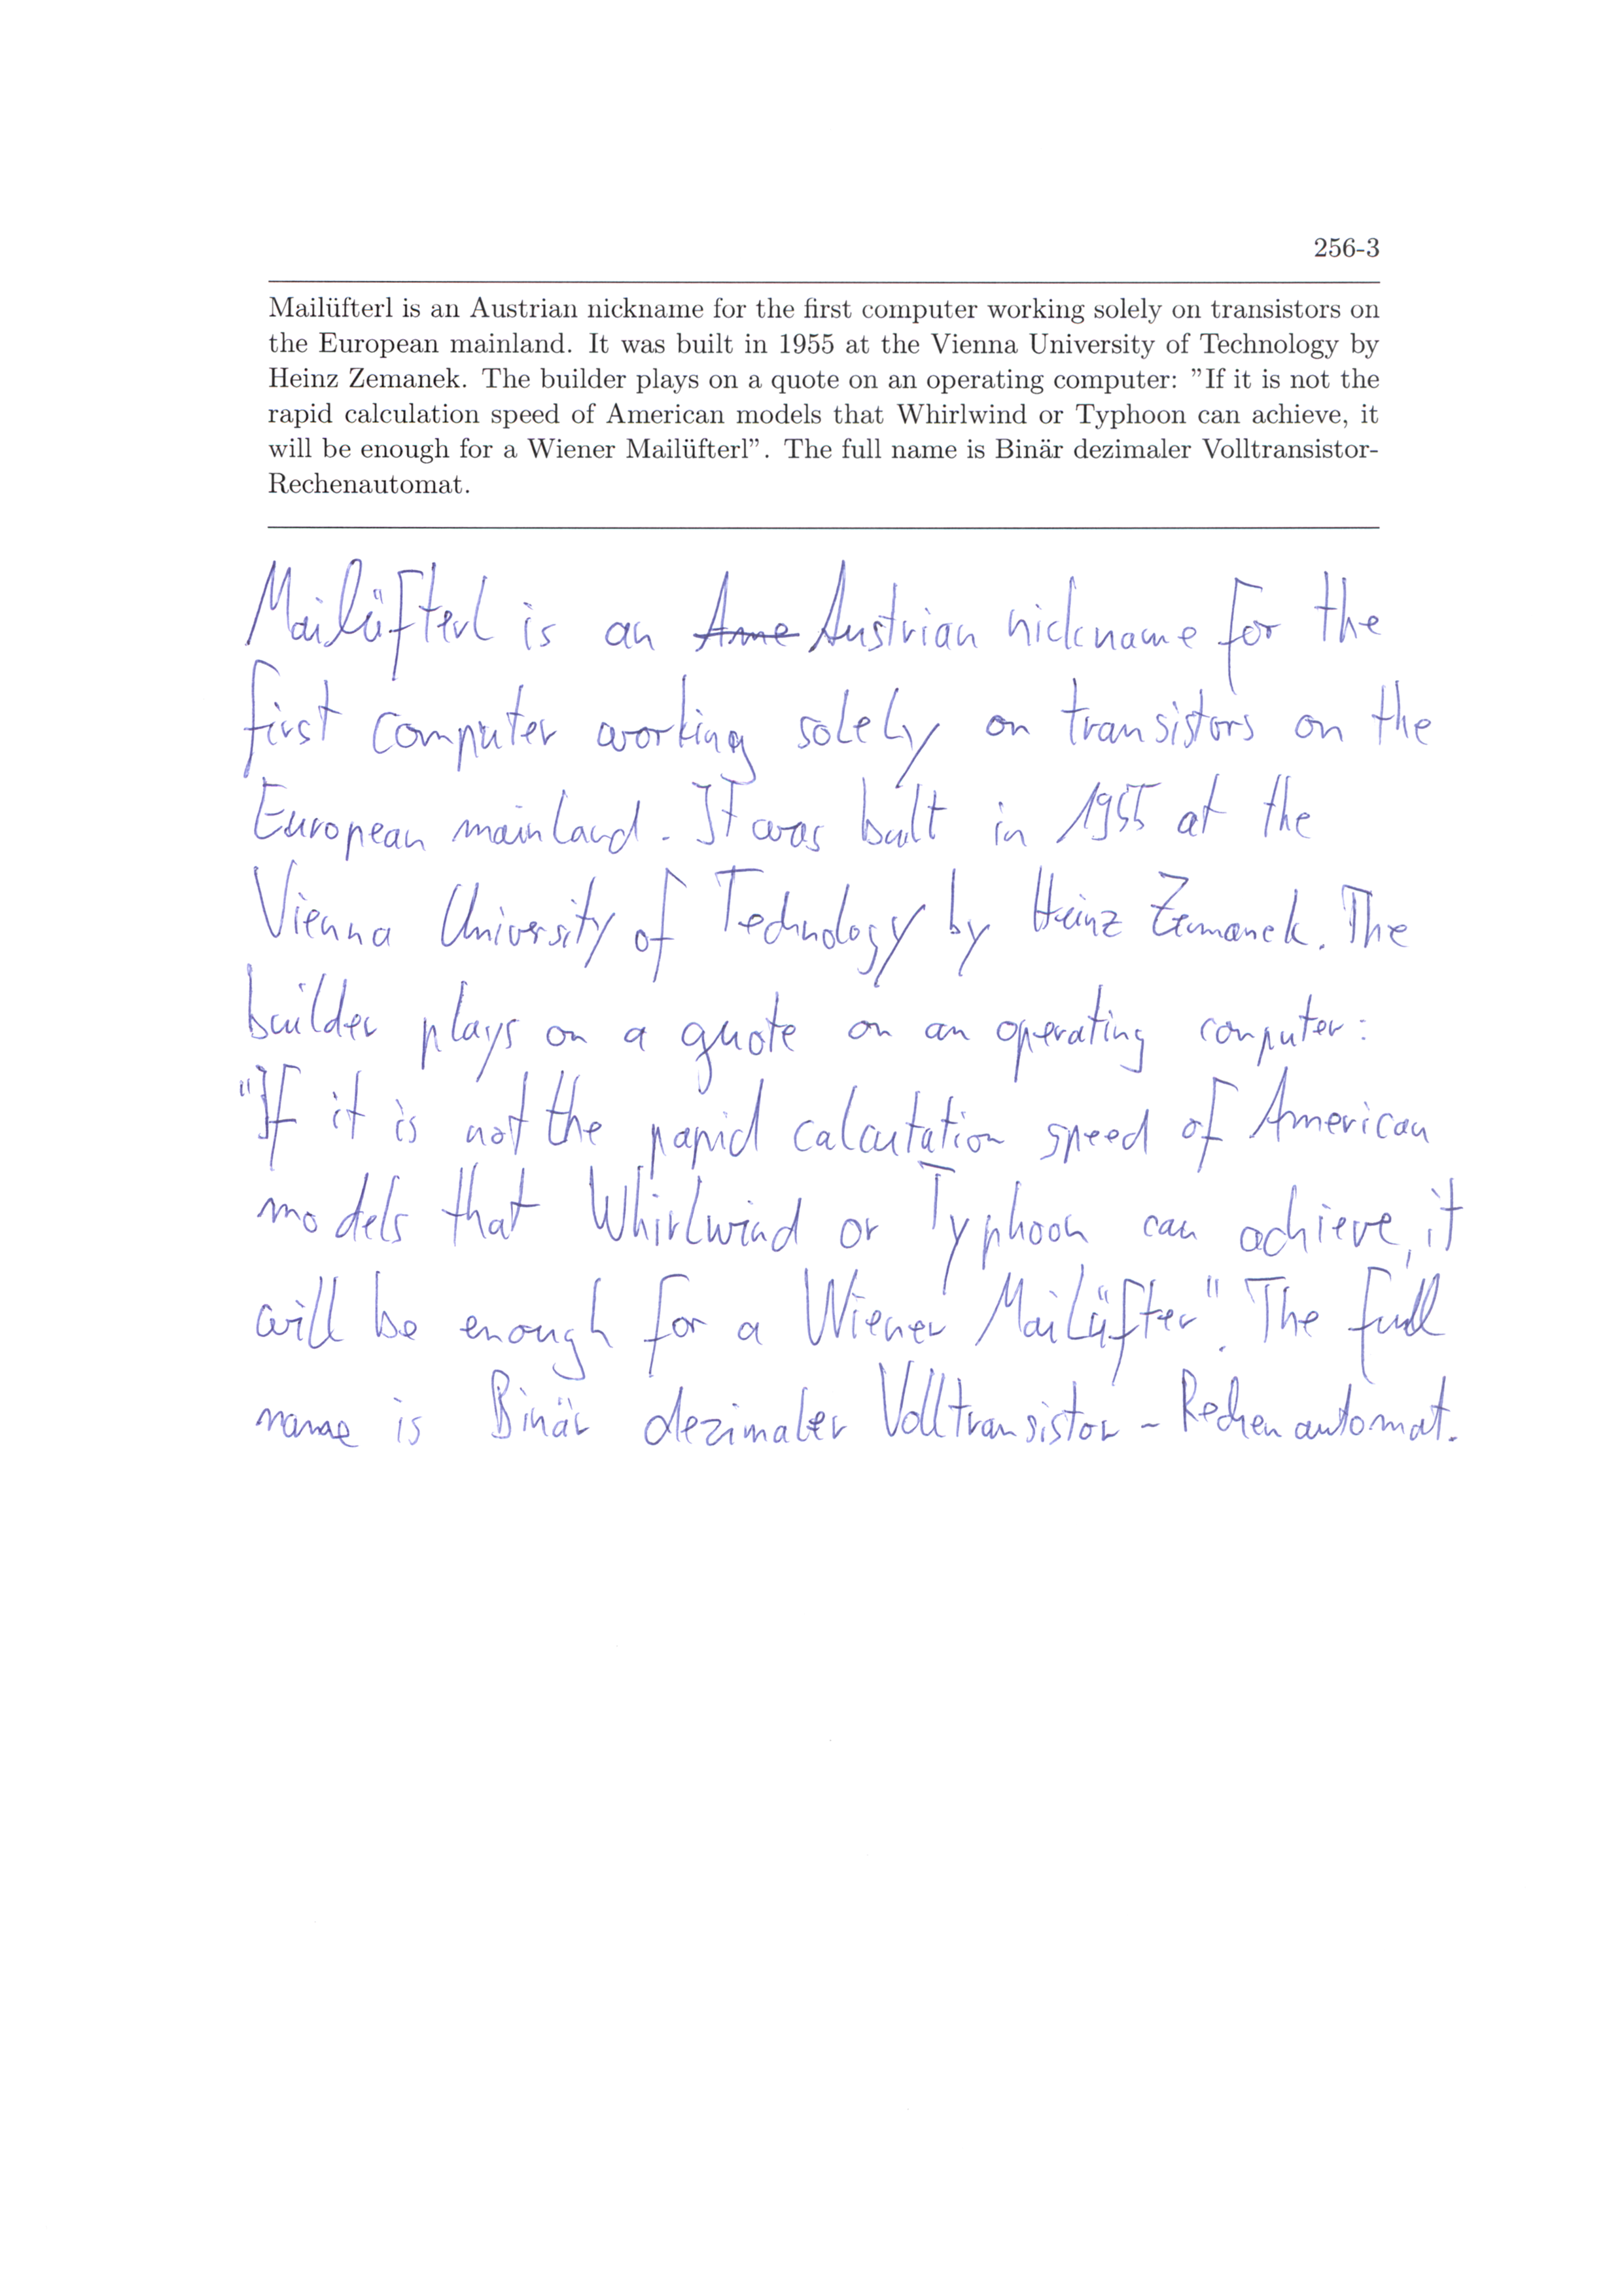 256-3
Mailüfterl is an Austrian nickname for the first computer working solely on transistors on
the European mainland. It was built in 1955 at the Vienna University of Technology by
Heinz Zemanek. The builder plays on a quote on an operating computer: ”If it is not the
rapid calculation speed of American models that Whirlwind or Typhoon can achieve, it
will be enough for a Wiener Mailüfterl”. The full name is Binär dezimaler Volltransistor-
Rechenautomat.
Mailüfterl is an Ame Austrian nickname for the
first computer working solely on transistors on the
European mainland. It was built in 1955 at the
Vienna University of Technology by Heinz Zemanek. The
builder plays on a quote on an operating computer:
"If it is not the papid calcutation speed of American
models that Whirlwind or Typhoon can achieve, it
will be enough for a Wiener Mailüfter". The full
name is Binär dezimaler Volltransistor - Rechenautomat.